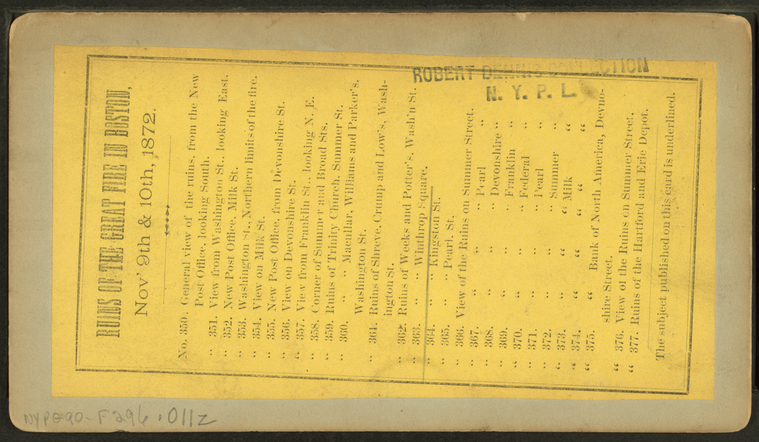 RUINS OF THE GREAT FIRE IN BOSTON,
Nov' 9th & 10th, 1872.
No. 350. General view of the ruins, from the New
Post Office, looking South.
,, 351. View from Washington St., looking East.
,, 352. New Post Office, Milk St.
,, 353. Washington St., Northern limits of the fire.
,, 354. View on Milk St.
,, 355. New Post Office, from Devonshire St.
,, 356. View on Devonshire St.
,, 357. View from Franklin St., looking N. E.
,, 358. Corner of Summer and Broad Sts.
,, 359. Ruins of Trinity Church, Summer St.
,, 360. ,, ,, Macullar, Williams and Parker's,
Washington St.
,, 361. Ruins of Shreve, Crump and Low's, Wash-
ington St.
,, 362. Ruins of Weeks and Potter's, Wash'n St.
,, 363. ,, ,, Winthrop Square.
,, 364. ,, ,, Kingston St.
,, 365. ,, ,, Pearl, St.
,, 366. View of the Ruins on Summer Street.
,, 367. ,, ,, ,, Pearl ,,
,, 368. ,, ,, ,, Devonshire ,,
,, 369. ,, ,, ,, Franklin ,,
,, 370. ,, ,, ,, Federal ,,
,, 371. ,, ,, ,, Pearl ,,
,, 372. ,, ,, ,, Summer ,,
,, 373. “ “ “ Milk “
“ 374. “ “ “ “ “
“ 375. “ Bank of North America, Devon-
shire Street.
“ 376. View of the Ruins on Summer Street.
“ 377. Ruins of the Hartford and Erie Depot.
The subject published on this card is underlined.
ROBERT DENNIS COLLECTION
N. Y. P. L.
NYPG90-F296.011Z